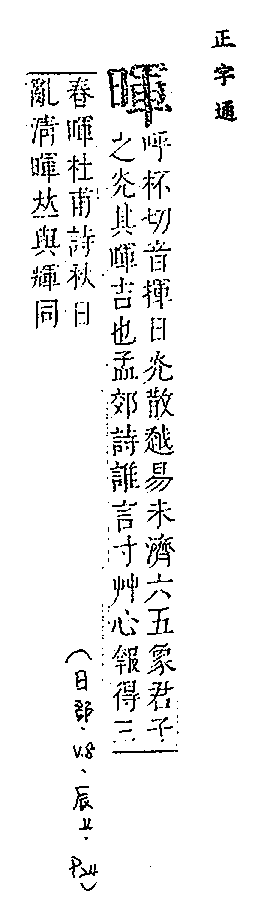 正字通
暉
呼杯切音揮日炗散越易未濟六五象君子
之炗其暉吉也孟郊詩誰言寸艸心報得三
春暉杜甫詩秋日
亂清暉𠀤與輝同
(日部.v.8、辰上.P24)